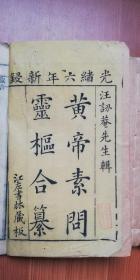 光緒六年新鋟
汪訒菴先生輯
黃帝素問
靈樞合纂
江左書林藏板